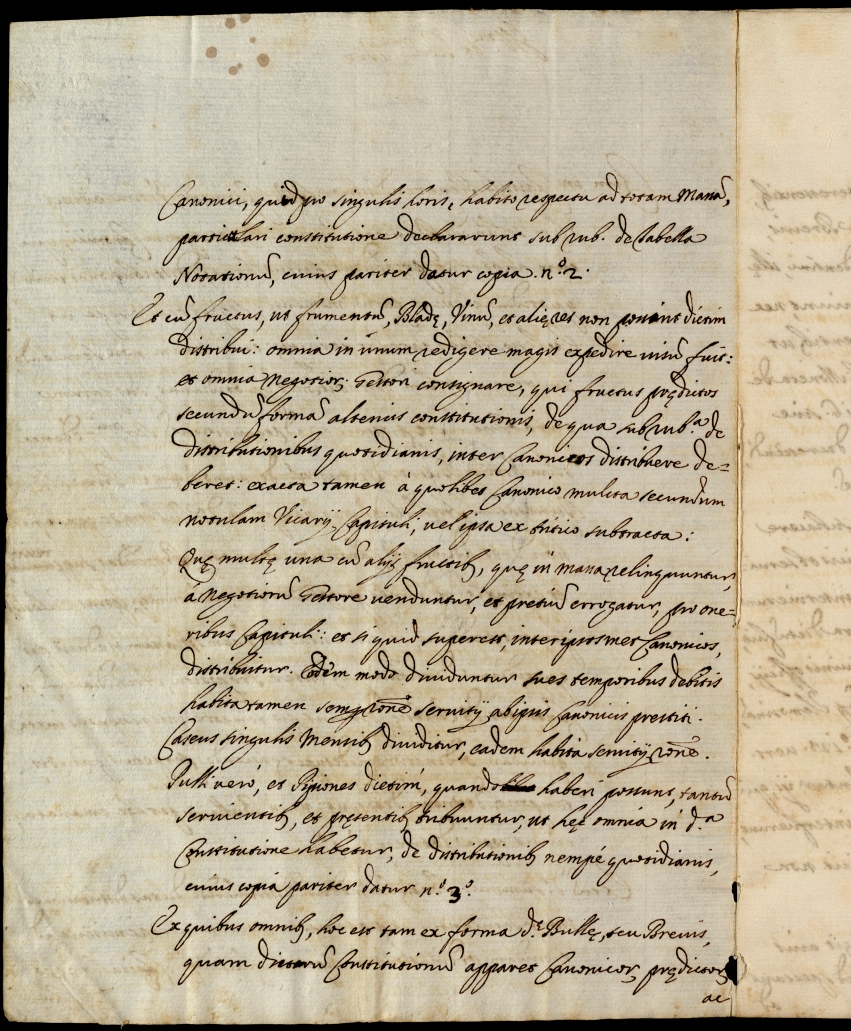 Canonici, quid pro singulis horis, habito respectu ad totam Massã,
particulari constitutione declararunt sub rub. de tabella
Notationũ, cuius pariter datur copia. n.º 2.
Et cũ fructus, ut frumentũ, Bladę, Vinũ, et alię res non possint dietim
distribui: omnia in unum redigere magis expedire uisũ fuit:
et omnia Negotior; Gestori consignare, qui fructus prędictos
secundũ formã alterius constitutionis, de qua sub rub.ª de
distributionibus quotidianis, inter Canonicos distribuere de=
beret: exacta tamen à quolibet Canonico mulcta secundum
notulam Vicarij Capituli, uel ipsa ex tritico subtracta:
Quę multę una cũ alijs fructib; quę in massa relinquuntur,
à Negotiorũ Gestore uenduntur, et pretiũ errogatur, pro one=
ribus Capituli: et si quid superest, inter ipsosmet Canonicos,
distribuitur. Eodẽm modo diuiduntur sues temporibus debitis
habita tamen semper rõne seruitij ab ipsis Canonicis prestiti.
Caseus singulis Mensib; diuiditur, eadem habita seruitij rõne.
Pulli verò, et Pipiones dietim, quando haberi possunt, tantũ
seruientib; et pręsentib; tribuuntur, ut hęc omnia in d.ª
Constitutione habetur, de distributionib; nempé quotidianis,
cuius copia pariter datur n.º 3º.
Ex quibus omnib; hoc est tam ex forma d.ę Bullę, seu Breuis,
quam dictarũ Constitutionũ apparet Canonicor; prędictor;
ac